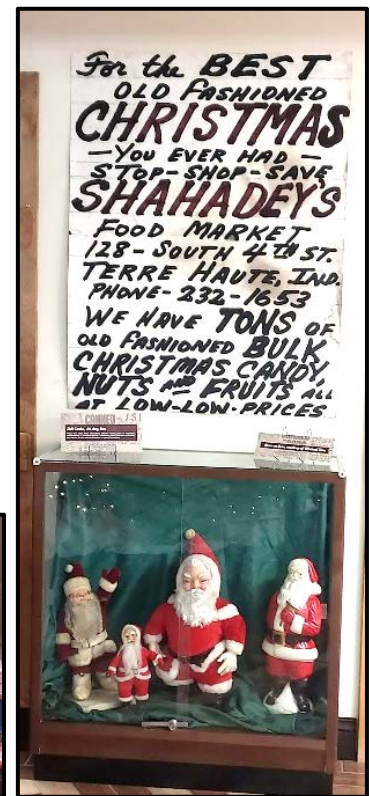 For the BEST
OLD FASHIONED
CHRISTMAS
—YOU EVER HAD—
STOP-SHOP-SAVE
SHAHADEY'S
FOOD MARKET
128-SOUTH 4TH ST.
TERRE HAUTE, IND.
PHONE-232-1653
WE HAVE TONS OF
OLD FASHIONED BULK
CHRISTMAS CANDY,
NUTS AND FRUITS ALL
AT LOW-LOW-PRICES